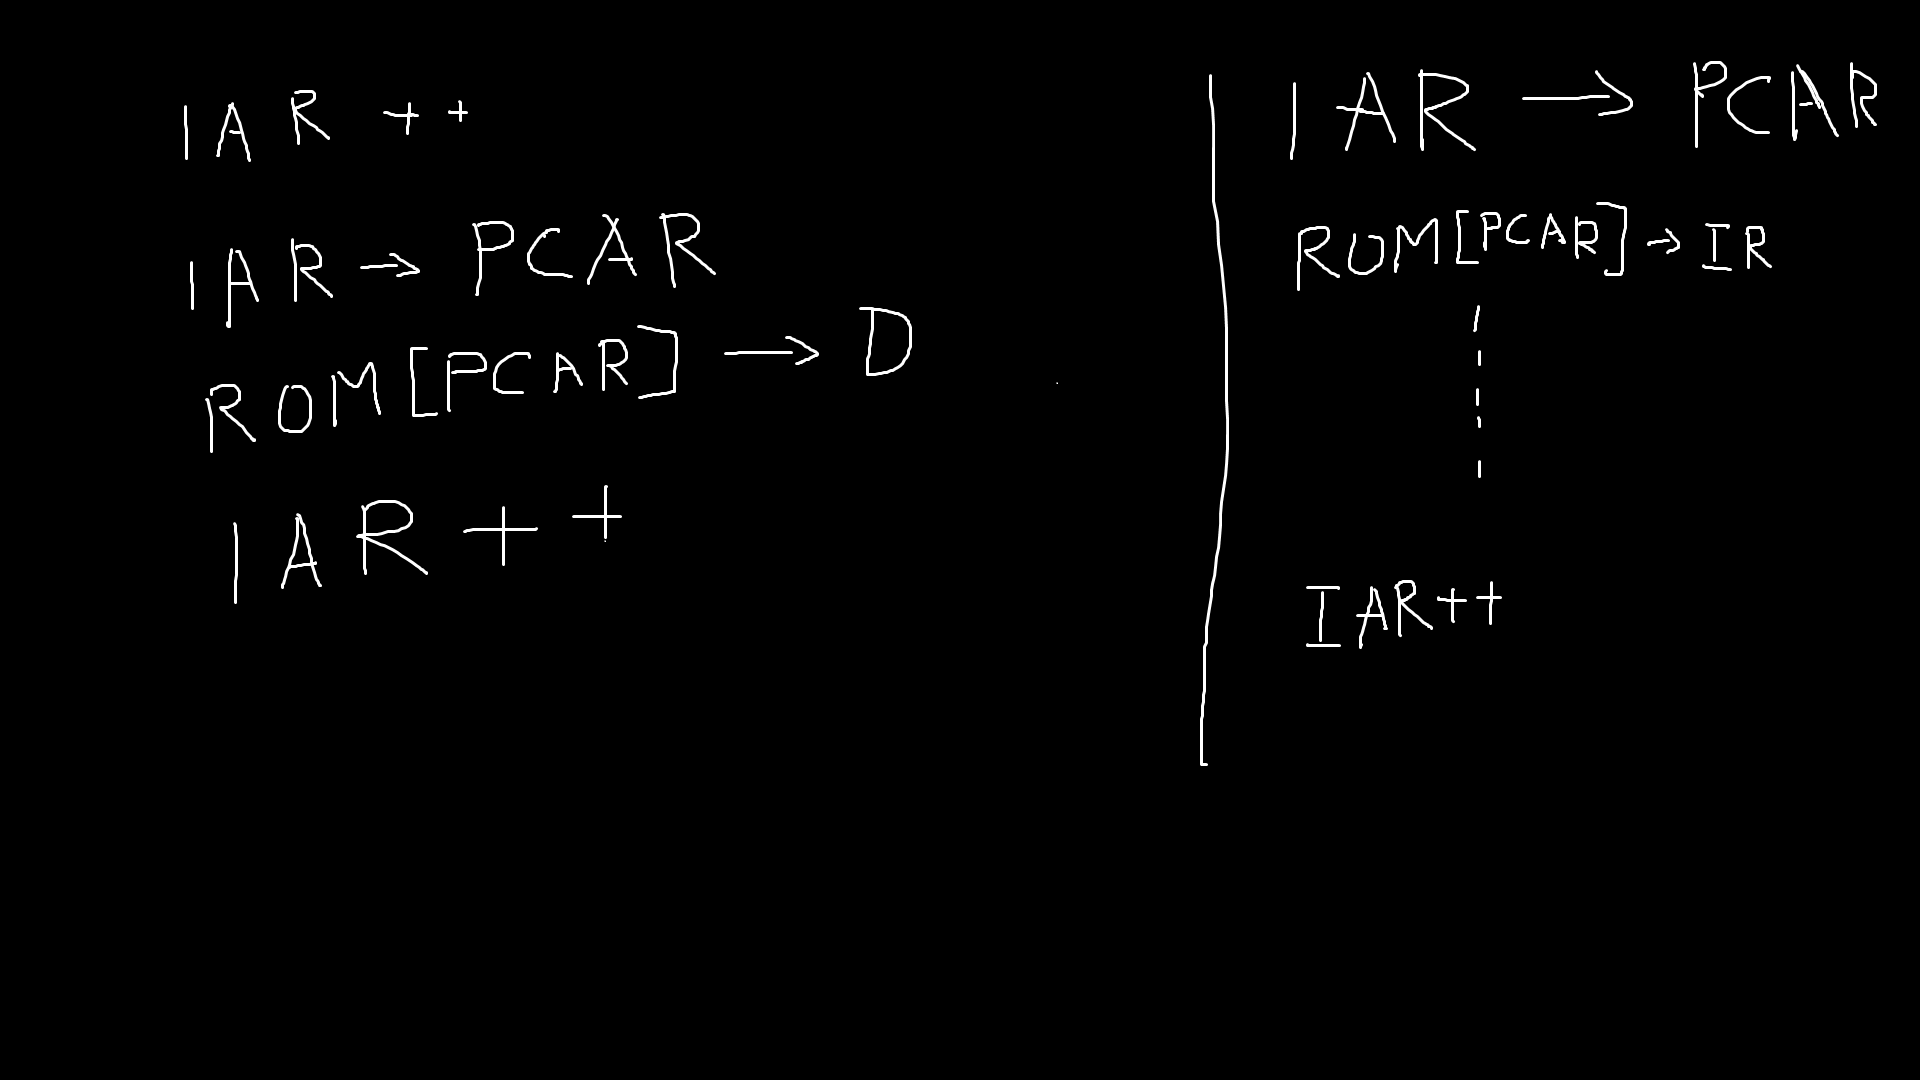 IAR ++
IAR → PCAR
ROM[PCAR] → D
IAR ++
IAR → PCAR
ROM[PCAR] → IR
IAR++